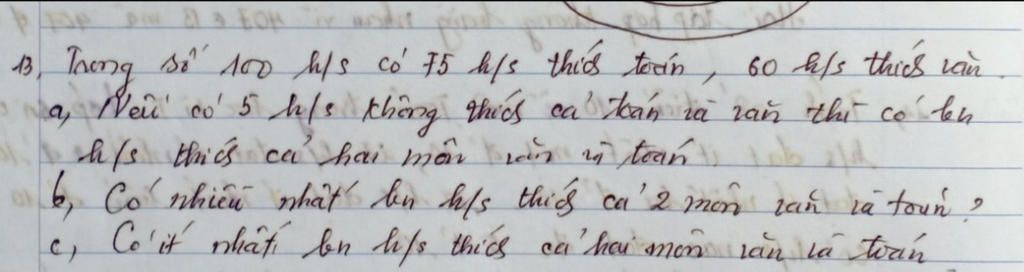 13, Trong số 100 h/s có 75 h/s thích toán, 60 h/s thích văn.
a, Nếu có 5 h/s không thích cả toán và văn thì có bn
h/s thích cả hai môn văn và toán
b, Có nhiều nhất bn h/s thích cả 2 môn văn và toán?
c, Có ít nhất bn h/s thích cả hai môn văn và toán